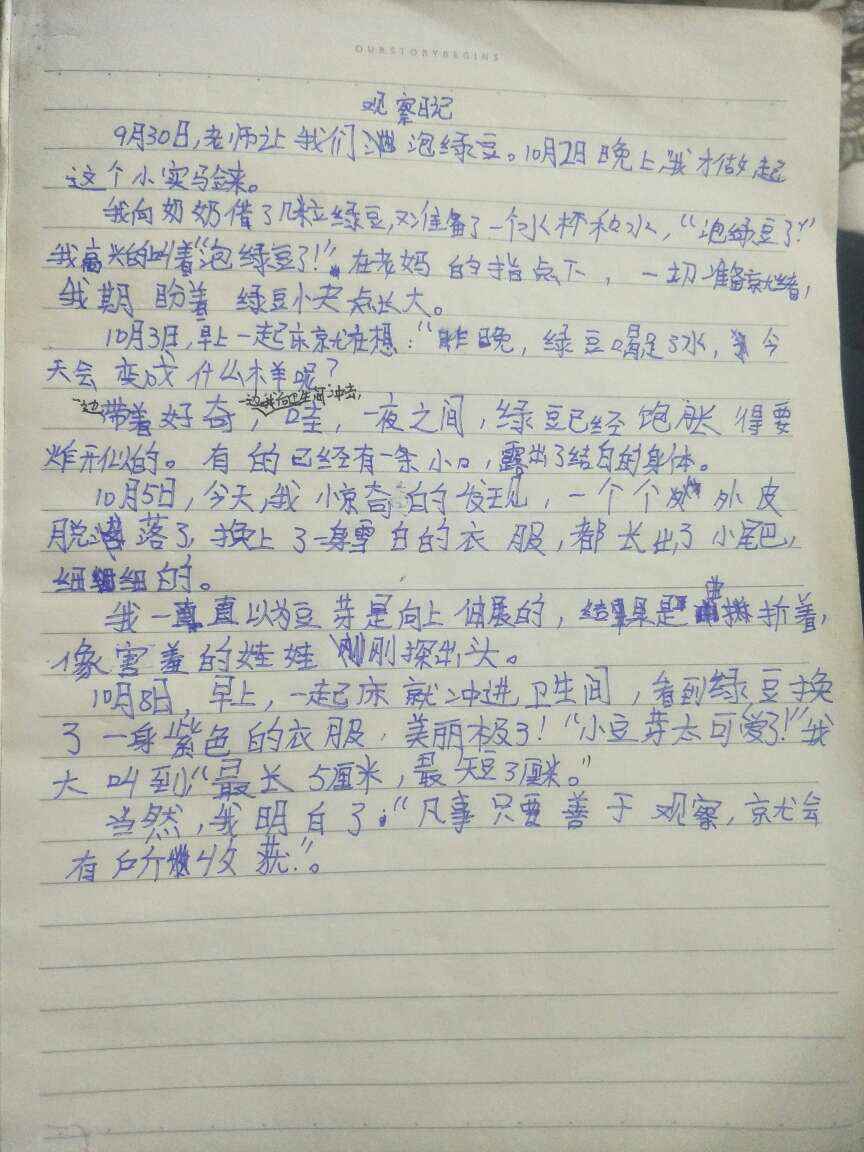 OURSTORYBEGINS
观察日记
9月30日,老师让我们泡绿豆。10月2日晚上,我才做起
这个小实验来。
我向奶奶借了几粒绿豆,又准备了一个水杯和水,“泡绿豆了!”
我高兴的叫着“泡绿豆了!”在老妈的指点下,一切准备就绪,
我期盼着绿豆小夫点长大。
10月3日,早上一起床就在想:“昨晚,绿豆喝足了水,今
天会变成什么样呢?
一边带着好奇,一边我向卫生间冲去,哇,一夜之间,绿豆已经饱胀得要
炸开似的。有的已经有一条小口,露出了结白的身体。
10月5日,今天,我惊奇的发现,一个个外皮
脱落了,换上了一身雪白的衣服,都长出了小尾巴,
细细的。
我一直以为豆芽是向上伸展的,结果是曲折着,
像害羞的娃娃刚探出头。
10月8日,早上,一起床就冲进卫生间,看到绿豆换
了一身紫色的衣服,美丽极了!“小豆芽太可爱了!”我
大叫到:“最长5厘米,最短3厘米。”
当然,我明白了:“凡事只要善于观察,就会
有所收获.”。